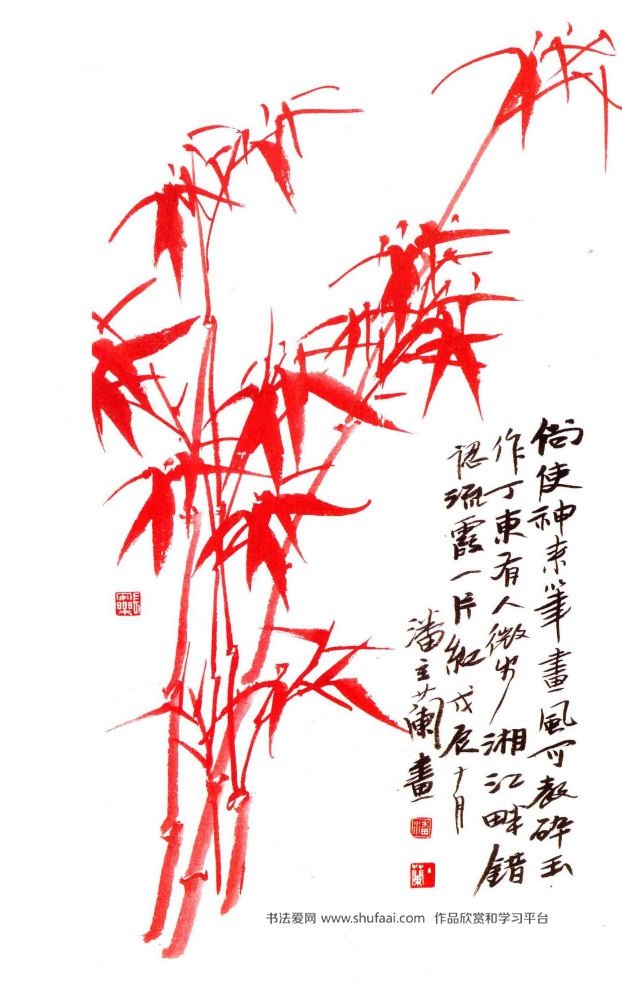 倘使神来筆畫風可教碎玉
作丁東有人微步湘江畔錯
認流霞一片紅戊辰十月
潘主蘭畫
書法爱网 www.shufaai.com 作品欣赏和学习平台